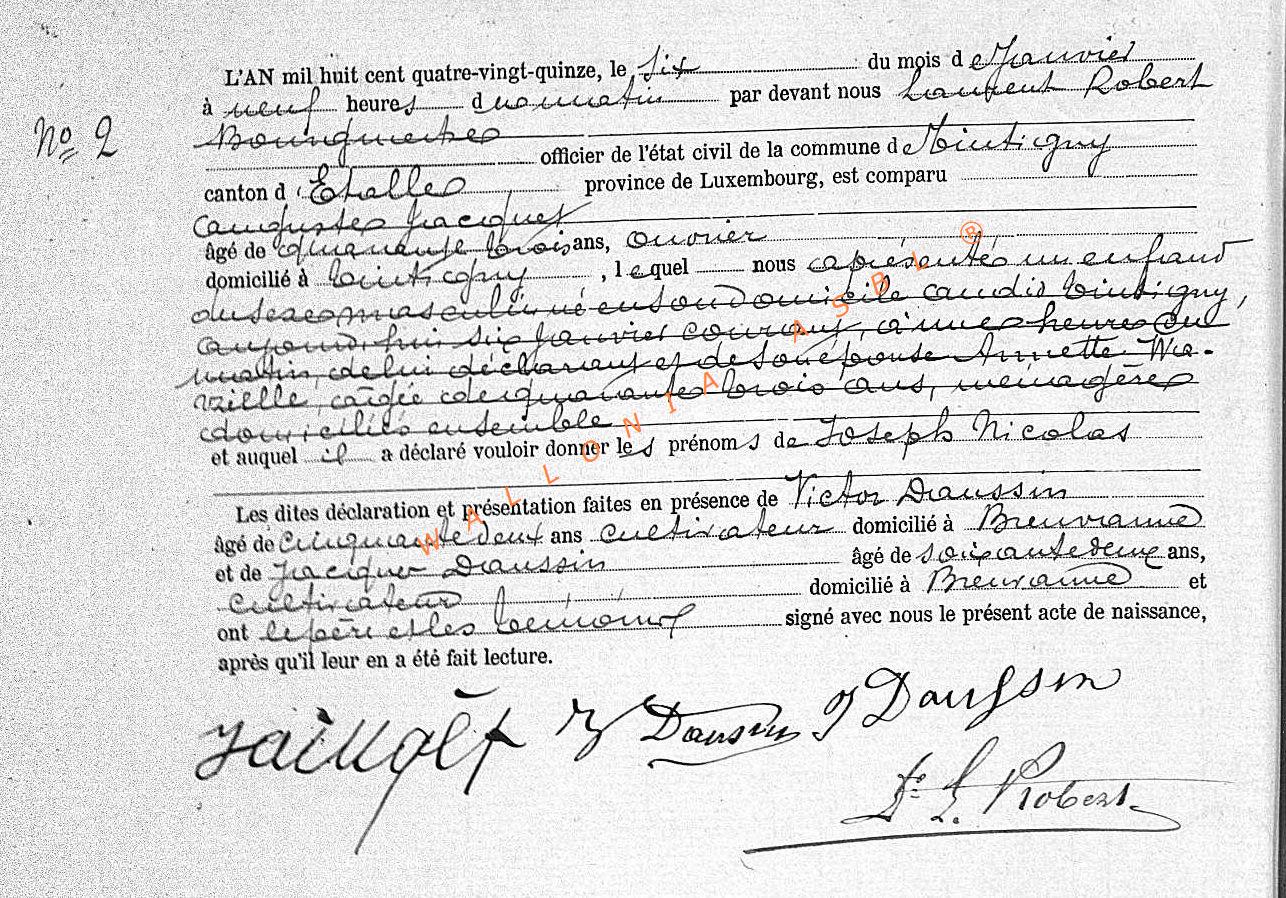 L'AN mil huit cent quatre-vingt-quinze, le six du mois de Janvier
à neuf heures du matin par devant nous Laurent Robert
No 2
Bourgmestre
officier de l'état civil de la commune de Tintigny
canton d'Etalle province de Luxembourg, est comparu
Auguste Jacques
âgé de quarante trois ans, ouvrier
domicilié à Tintigny, lequel nous a présenté un enfant
du sexe masculin né en son domicile audit Tintigny,
aujourd'hui six Janvier courant, à une heure du
matin, de lui déclarant et de son épouse Annette
âgée de quarante trois ans, ménagère
domiciliés ensemble
et auquel il a déclaré vouloir donner les prénoms de Joseph Nicolas
Les dites déclaration et présentation faites en présence de Victor Daussin
âgé de cinquante deux ans cultivateur domicilié à Breuvanne
et de Jacques Daussin âgé de soixante deux ans,
cultivateur domicilié à Breuvanne et
ont le père et les témoins signé avec nous le présent acte de naissance,
après qu'il leur en a été fait lecture.
Daussin J Daussin
L. Robert
WALLONIA ASBL ®